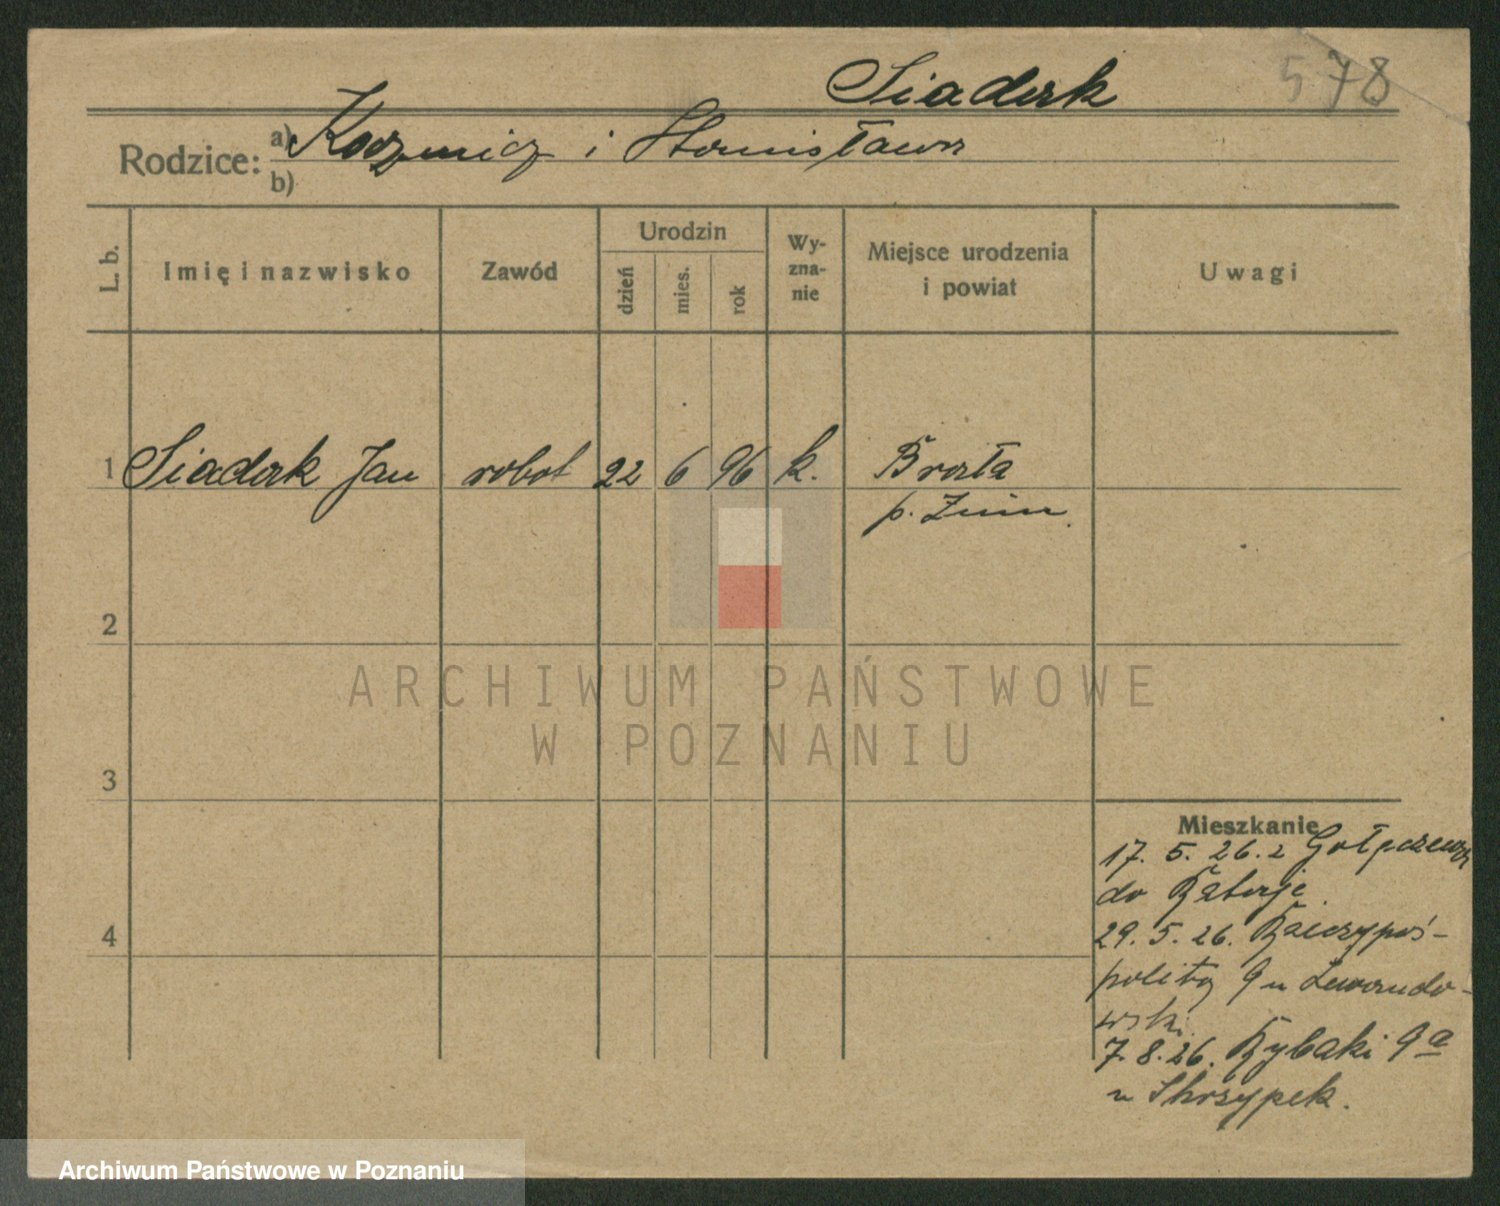 Siaderk
578
Rodzice:
a) i Stanisława
b)
L. b.
Imię i nazwisko
Zawód
Urodzin
dzień
mies.
rok
Wy-
zna-
nie
Miejsce urodzenia
i powiat
Uwagi
1 Siaderk Jan robot 22 6 96 k.
p. Żnin
2
3
4
ARCHIWUM PAŃSTWOWE
W POZNANIU
Mieszkanie
17. 5. 26. z
do
29. 5. 26.
9 u Lewando-
wski.
7. 8. 26. Rybaki 9a
u Skrzypek.
Archiwum Państwowe w Poznaniu